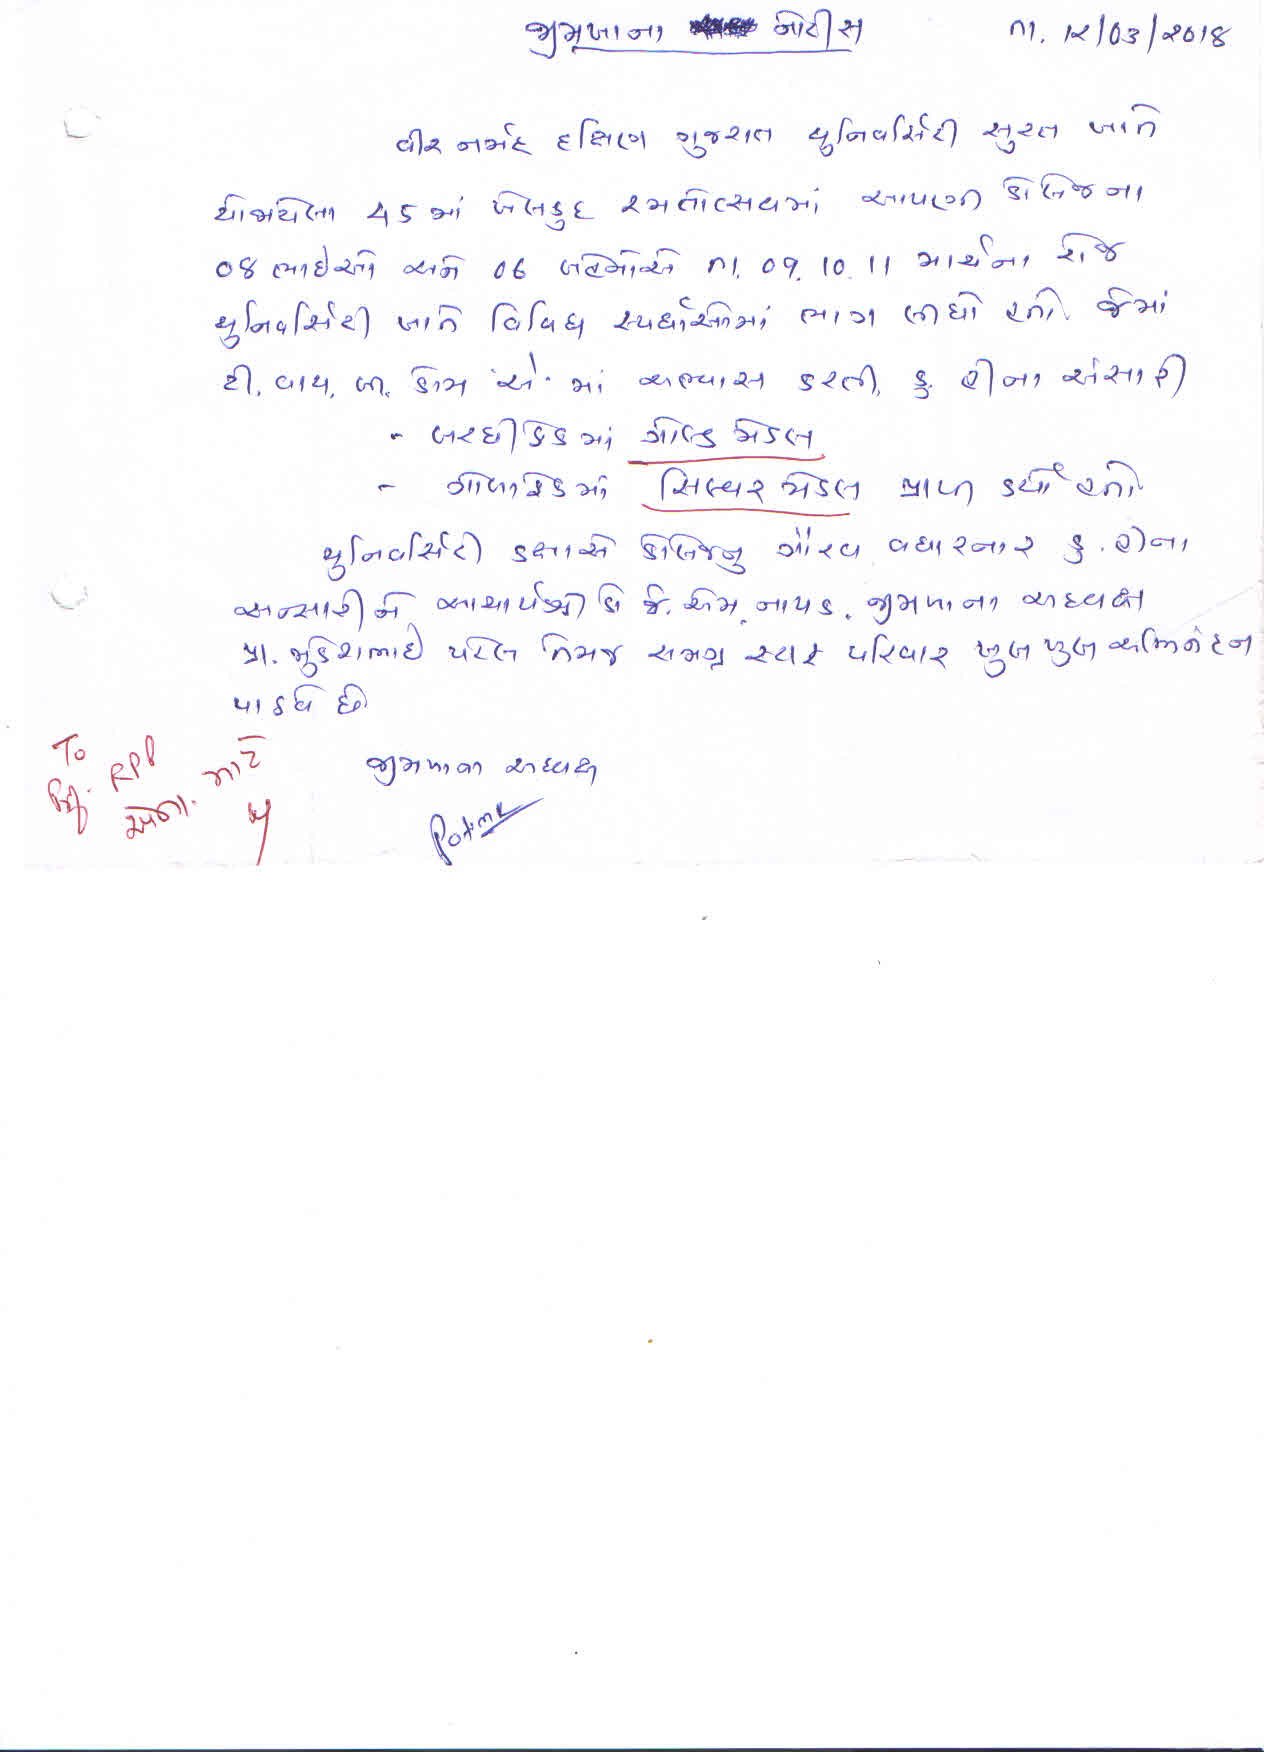 જીમખાના નોટીસ તા. ૧૨/03/૨૦18
વીર નર્મદ દક્ષિણ ગુજરાત યુનિવર્સિટી સુરત ખાતે
યોજાયેલા 45 માં ખેલકુદ રમતોત્સવમાં આપણી કોલેજના
08 ભાઈઓ અને 06 બહેનોએ તા. 09, 10, 11 માર્ચના રોજ
યુનિવર્સિટી ખાતે વિવિધ સ્પર્ધાઓમાં ભાગ લીધો હતો. જેમાં
ટી. વાય. બી. કોમ 'એ' માં અભ્યાસ કરતી, કુ. હીના અંસારી
- બરછીફેંકમાં ગોલ્ડ મેડલ
- ગોળાફેંકમાં સિલ્વર મેડલ પ્રાપ્ત કર્યો હતો
યુનિવર્સિટી કક્ષાએ કોલેજનુ ગૌરવ વધારનાર કુ. હીના
અન્સારીને આચાર્યશ્રી ડો જે. એમ. નાયક, જીમખાના અધ્યક્ષ
પ્રા. મુકેશભાઈ પટેલ તેમજ સમગ્ર સ્ટાફ પરિવાર ખુબ ખુબ અભિનંદન
પાઠવે છે
જીમખાના અધ્યક્ષ
To
Prof. RPP
માટે